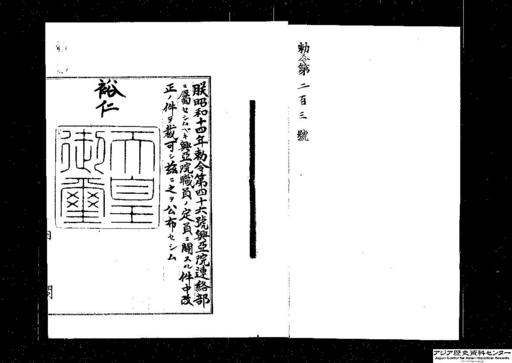 勅令第二百三號
朕昭和十四年勅令第四十六號興亞院連絡部
ニ屬セシムベキ興亞院職員ノ定員ニ關スル件中改
正ノ件ヲ裁可シ茲ニ之ヲ公布セシム
裕仁
天皇御璽
内
閣
アジア歴史資料センター
Japan Center for Asian Historical Records